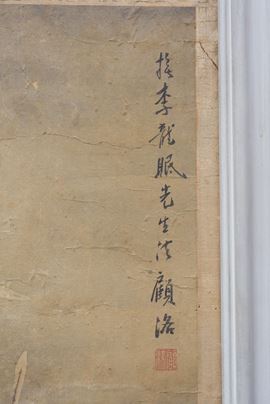 摹李龍眠先生法顧洛